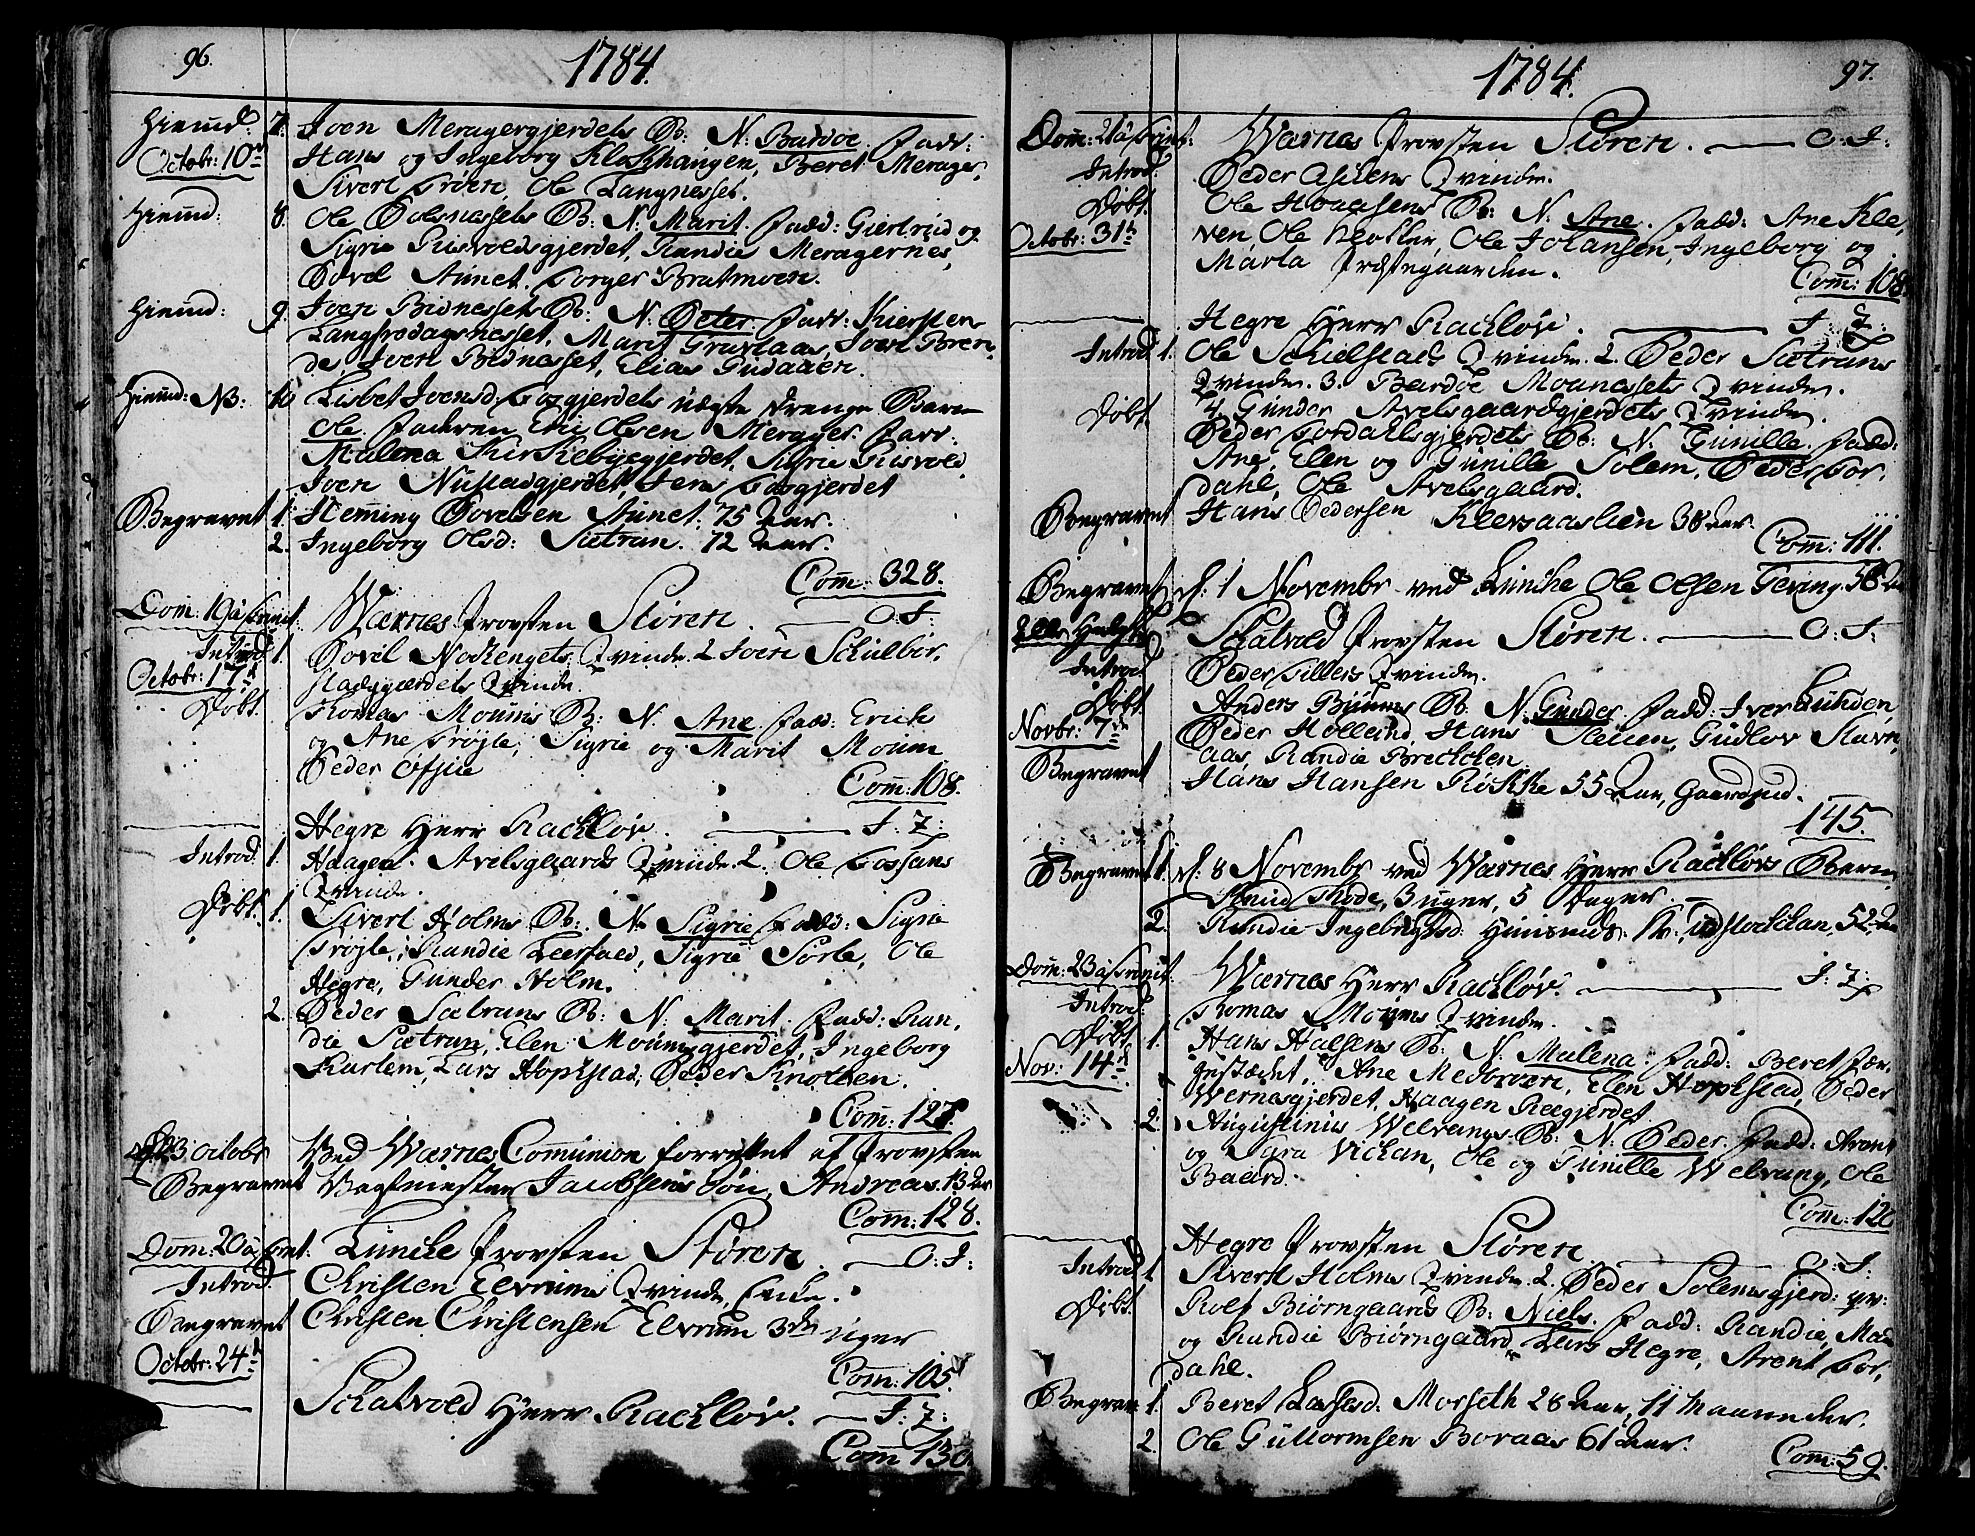 96.
1784.
Hiemd: 7. Joen Meragergjerdets B: N: Bardoe. Fadr:
Octobr: 10de Hans og Ingeborg Klokhaugen, Beret Merager,
Sivert Groen, Ole Langnesset.
Hiemd: 8. Ole Dolsnessets B: N: Marit. Fadd: Giertrud og
Sigrie Risvoldsgjerdet, Randie Meragernes,
Povel Aunet. Torger Bratmoen.
Hiemd: 9. Joen Bidnessets B: N: Peter. Fadr: Kiersten
Langfrodagsnesset, Marit Gravlaas, Joen Bren,
de, Joen Bidnesset, Elias Gudaaen.
Hiemd: NB: 10 Lisbet Joensd: gjerdets uægte drenge Barn
Ole. Fadren Eric Olsen Merager. Fadr:
Malena Kirkebyegjerdet, Sigrie Risvold
Joen Nustadgjerdet, Jens gjerdet
Begravet 1. Hemming Povelsen Aunet. 75 Aar.
2. Ingeborg Olsd: Sætran. 72 Aar.
Com: 328.
Dom: 19 a Trinit: Wærnes Provsten Støren. O. T:
Introd. 1. Povel Nokengets Qvinde. 2 Joen Schulbor,
Octobr: 17de stadgjærdets Qvinde.
Døbt. Thomas Moums B: N: Ane. Fadd: Erich
og Ane Trøjte, Sigrie og Marit Moum
Peder
Com: 108.
Hegre Herr Rachløv. T: 7:
Introd. 1. Haagen Avelsgaards Qvinde. 2. Ole Fossans
Qvinde.
Døbt. 1. Sivert Holms B: N: Sigrie. Fadd: Sigrie
Trøjte, Randie Leerfald, Sigrie Sorte, Ole
Hegre, Gunder Holm.
2. Peder Sætrans B: N: Marit. Fadd: Ran,
die Sætran, Elen Moumsgjerdet, Ingeborg
Kartem, Lars Hopstad, Peder Knotten.
Com: 127.
d. 23 Octobr Ved Wærnes Communion forrettet af Provsten
Begravet Vagtmester Jacobsens Søn, Andreas. 13 Aar
Com: 128.
Dom: 20 a Trnt: Luncke Provsten Støren. O: T:
Introd. Christen Elvrums Qvinde, Enke.
Begravet Christen Christensen Elvrum 3de uger
Octobr: 24de
Com: 105
Schatvold Herr Rachløv. T: 7:
Com 130.
1784.
97.
Dom: 21 a Trinit: Wærnes Provsten Støren. O. T:
Introd. Peder Aschens Qvinde.
Døbt. Ole Hoaasens B: N: Ane. Fadd: Ane Kle,
Octobr: 31te ven, Ole Kloster, Ole Johansen, Ingeborg og
Marta Præstegaarden.
Com: 108.
Hegre Herr Rachløv. T: 7:
Introd 1. Ole Schielstads Qvinde. 2. Peder Sætrans
Qvinde. 3. Bardoe Moanessets Qvinde.
4. Gunder Avelsgaardgjerdets Qvinde.
Døbt. Peder Fordahlsgjerdets B: N: Gunille. Fadd:
Ane, Elen og Gunille Solem, Peder For,
dahl, Ole Avelsgaard.
Begravet Hans Pedersen Klevsaaslien 38 Aar.
Com: 111.
Begravet d. 1 Novembr ved Luncke Ole Olsen Gersing. 58 Aar
Alle Helgen Schatvold Provsten Støren. O: T:
Introd. Peder Tillers Qvinde.
Døbt. Anders Bjuums B: N: Gunder. Fadd: Iver Lunden,
Novbr: 7de Peder Holland, Hans Steuen, Gudlov Stavn,
aas, Randie Brechken.
Begravet Hans Hansen Røkke 55 Aar, Gaardmd.
145.
Begravet 1. d. 8 Novembr ved Wærnes Herr Rachløvs Barn
Knud Thode, 3 uger, 5 Dager.
2. Randie Ingebrigtsd: Huusmds: Kv: ud Stockkan, 52 Aar
Dom: 23 a Trinit: Wærnes Herr Rachløv. T: 7:
Introd: Thomas Moums Qvinde.
Døbt. 1. Hans Halsens B: N: Malena. Fadd: Beret Fær,
Nov: 14de gestædet, Ane Medbroen, Elen Hopstad, Peder
Wernesgjerdet, Haagen Reegjerdet
2. Augustinus Welvangs B: N: Peder. Fadd: Arent
og Sara Vickan, Ole og Gunille Welvang, Ole
Baard.
Com: 120
Hegre Provsten Støren. O: T:
Introd 1. Sivert Holms Qvinde. 2. Peder Solemsgjerd: qv:
Døbt. Rolf Biørngaards B: Niels. Fadd: Randie, Mar
og Randie Biørngaard, Lars Hegre, Arent For,
dahl.
Begravn 1. Beret Larsd. Morseth 28 Aar, 11 Maaneder.
2. Ole Guttormsen Boraas 61 Aar.
Com: 59.